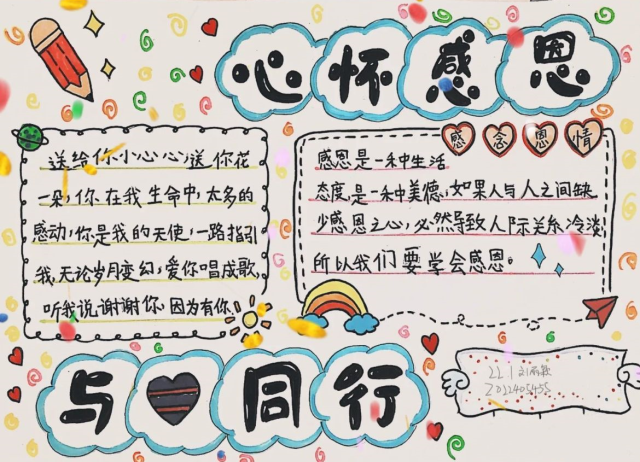 心怀感恩
感念恩情
送给你小心心送你花
一朵,你在我生命中,太多的
感动,你是我的天使,一路指引
我,无论岁月变幻,爱你唱成歌,
听我说谢谢你,因为有你
感恩是一种生活
态度,是一种美德,如果人与人之间缺
少感恩之心,必然导致人际关系冷淡
所以我们要学会感恩。
与 同行
221
2022405455